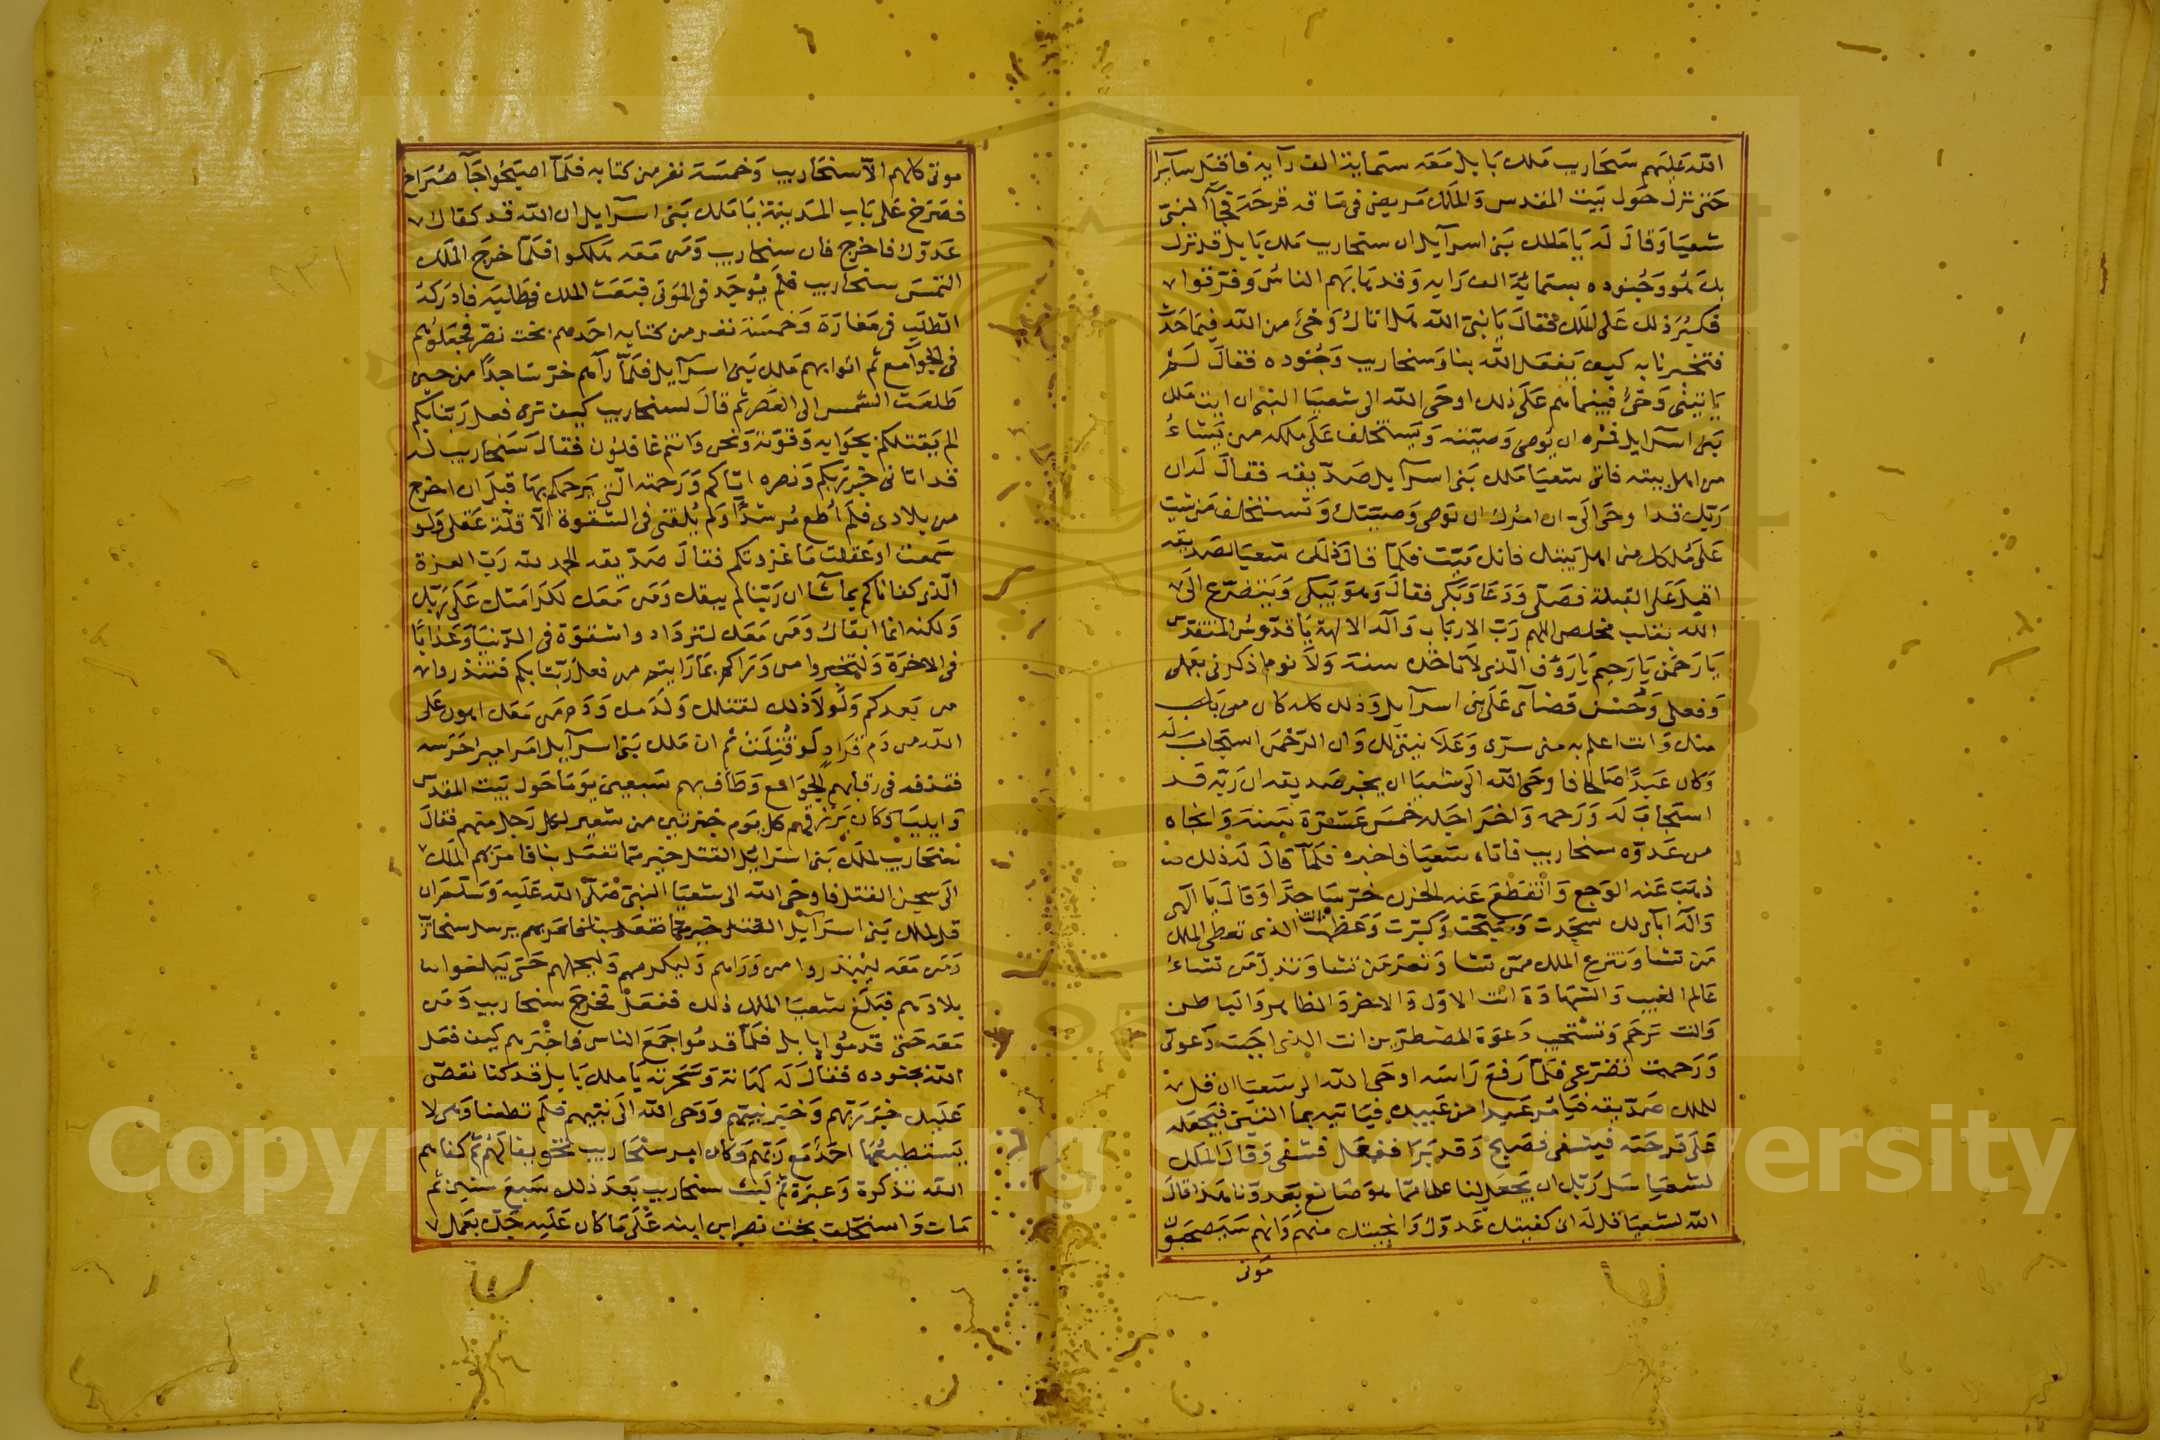 الله عليهم سنحاريب ملك بابل معه ستماية الف راية فاقبل سايرا
حتى نزل حول بيت المقدس والملك مريض في ساقه قرحة فجآ النبي
شعيا وقال له يا ملك بنى اسرآيل ان سنحاريب ملك بابل قد نزل
بك هو وجنوده بستمائة الف راية وقد هابهم الناس وفرقوا
فكبر ذلك على الملك فقال يا نبي الله هل اتاك وحي من الله فيما حدث
فتخبرنا به كيف يفعل الله بنا وسنحاريب وجنوده فقال لم
ياتيني وحي فبينما هم على ذلك اوحى الله الى شعيا النبي ان ايت ملك
بنى اسرآيل فمره ان يوصى وصيته ويستخلف على ملكه من يشاء
من اهل بيته فاتى شعيا ملك بنى اسرآيل صديقه فقال له ان
ربك قد اوحى الى ان امرك ان توصى وصيتك وتستخلف من شيت
على ملكك من اهل بيتك فانك ميت فلما قال ذلك شعيا لصديقه
اقبل على القبلة فصلى ودعا وبكى فقال وهو يبكى ويتضرع الى
الله بقلب مخلص اللهم رب الارباب واله الالهة يا قدوس المتقدس
يا رحمن يا رحيم يا رؤف الذى لا تاخذه سنة ولا نوم اذكرنى بعملى
وفعلى وحسن قضآى على بنى اسرآيل وذلك كله كان
منك وانت اعلم به منى سرى وعلانيتى لك وان الرحمن استجاب له
وكان عبدا صالحا فاوحى الله الى شعيا ان يخبر صديقه ان ربه قد
استجاب له ورحمه واخر اجله خمس عشرة سنة وانجاه
من عدوه سنحاريب فاتاه شعيا فاخبره فلما قال له ذلك
ذهب عنه الوجع وانقطع عنه الحزن خر ساجدا وقال يا الهى
واله ابآى لك سجدت وسبحت وكبرت وعظمت انت الذى تعطى الملك
من تشا وتنزع الملك ممن تشا وتعز من تشا وتذل من تشاء
عالم الغيب والشهادة انت الاول والاخر والظاهر والباطن
وانت ترحم وتستجيب دعوة المضطرين انت الذى اجبت دعوتى
ورحمت تضرعى فلما رفع راسه اوحى الله الى شعيا ان قل
للملك صديقه فيامر عبدا من عبيده فياتيه بما التين فيجعله
على قرحته فيشفى فيصبح وقد برا ففعل فشفى وقال الملك
لشعيا سل ربك ان يجعل لنا علما بما هو صانع بعدونا هذا قال
الله لشعيا قل له انى كفيتك عدوك وانجيتك منهم وانهم سيصبحون
موتى
موتى كلهم الا سنحاريب وخمسة نفر من كتابه فلما اصبحوا جآ صراخ
فصرخ على باب المدينة يا ملك بنى اسرآيل ان الله قد كفاك
عدوك فاخرج فان سنحاريب ومن معه هلكوا فلما خرج الملك
التمس سنحاريب فلم يوجد فى الموتى فبعث الملك فى طلبه فادركه
الطلب فى مغارة وخمسة نفر من كتابه احدهم بخت نصر فجعلوهم
فى الجوامع ثم اتوا بهم ملك بنى اسرآيل فلما رآهم خر ساجدا من حين
طلعت الشمس الى العصر ثم قال لسنحاريب كيف ترى فعل ربنا بكم
الم يقتلكم بحوله وقوته ونحن وانتم غافلون فقال سنحاريب له
قد اتانى خبر ربكم ونصره اياكم ورحمته التى يرحمكم بها قبل ان اخرج
من بلادى فلم اطع مرشدا ولم يلقنى فى الشقوة الا قلة عقلى ولو
سمعت او عقلت ما غزوتكم فقال صديقه الحمد لله رب العزة
الذى كفاناكم بما شآ ان ربنا لم يبقك ومن معك لكرامتك على ربك
ولكنه انما ابقاك ومن معك لتزدادوا شقوة فى الدنيا وعذابا
فى الاخرة ولتخبروا من ورآكم بما رايتم من فعل ربنا بكم فتنذروا
من بعدكم ولولا ذلك لقتلك ولدمك ودم من معك اهون على
الله من دم قراد لو قتلت ثم ان ملك بنى اسرآيل امر امير حرسه
فقذف فى رقابهم الجوامع وطاف بهم سبعين يوما حول بيت المقدس
وايليا وكان يرزقهم كل يوم خبزتين من شعير لكل رجل منهم فقال
سنحاريب لملك بنى اسرايل القتل خير مما تفعل بنا فامر بهم الملك
الى سجن القتل فاوحى الله الى شعيا النبي صلى الله عليه وسلم ان
قل لملك بنى اسرآيل يرسل سنحاريب
ومن معه لينذروا من ورآهم وليكرمهم وليحملهم حتى يبلغوا
بلادهم فبلغ شعيا الملك ذلك ففعل فخرج سنحاريب ومن
معه حتى قدموا بابل فلما قدموا جمع الناس واخبرهم كيف فعل
الله بجنوده فقال له كهانه وسحرته يا ملك بابل قد كنا نقص
عليك خبر ربهم وخبر نبيهم ووحى الله الى نبيهم فلم تطعنا وهى لا
يستطيعها احد مع ربهم وكان امر سنحاريب تخويفا لهم ثم كفاهم
الله تذكرة وعبرة ثم لبث سنحاريب بعد ذلك سبع سنين ثم
مات واستخلف بخت نصر ابن ابنه على ما كان عليه جده يعمل
Copyright © King Saud University